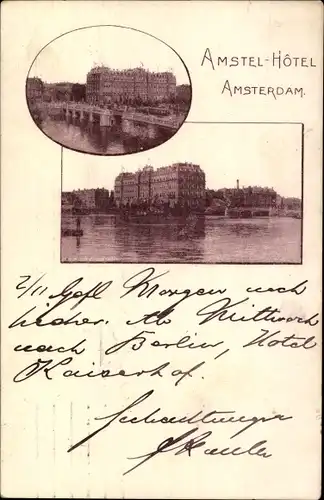 AMSTEL-HÔTEL
AMSTERDAM.
2/11 Gefl Morgen noch
hieher. Ab Mittwoch
nach Berlin, Hotel
Kaiserhof.